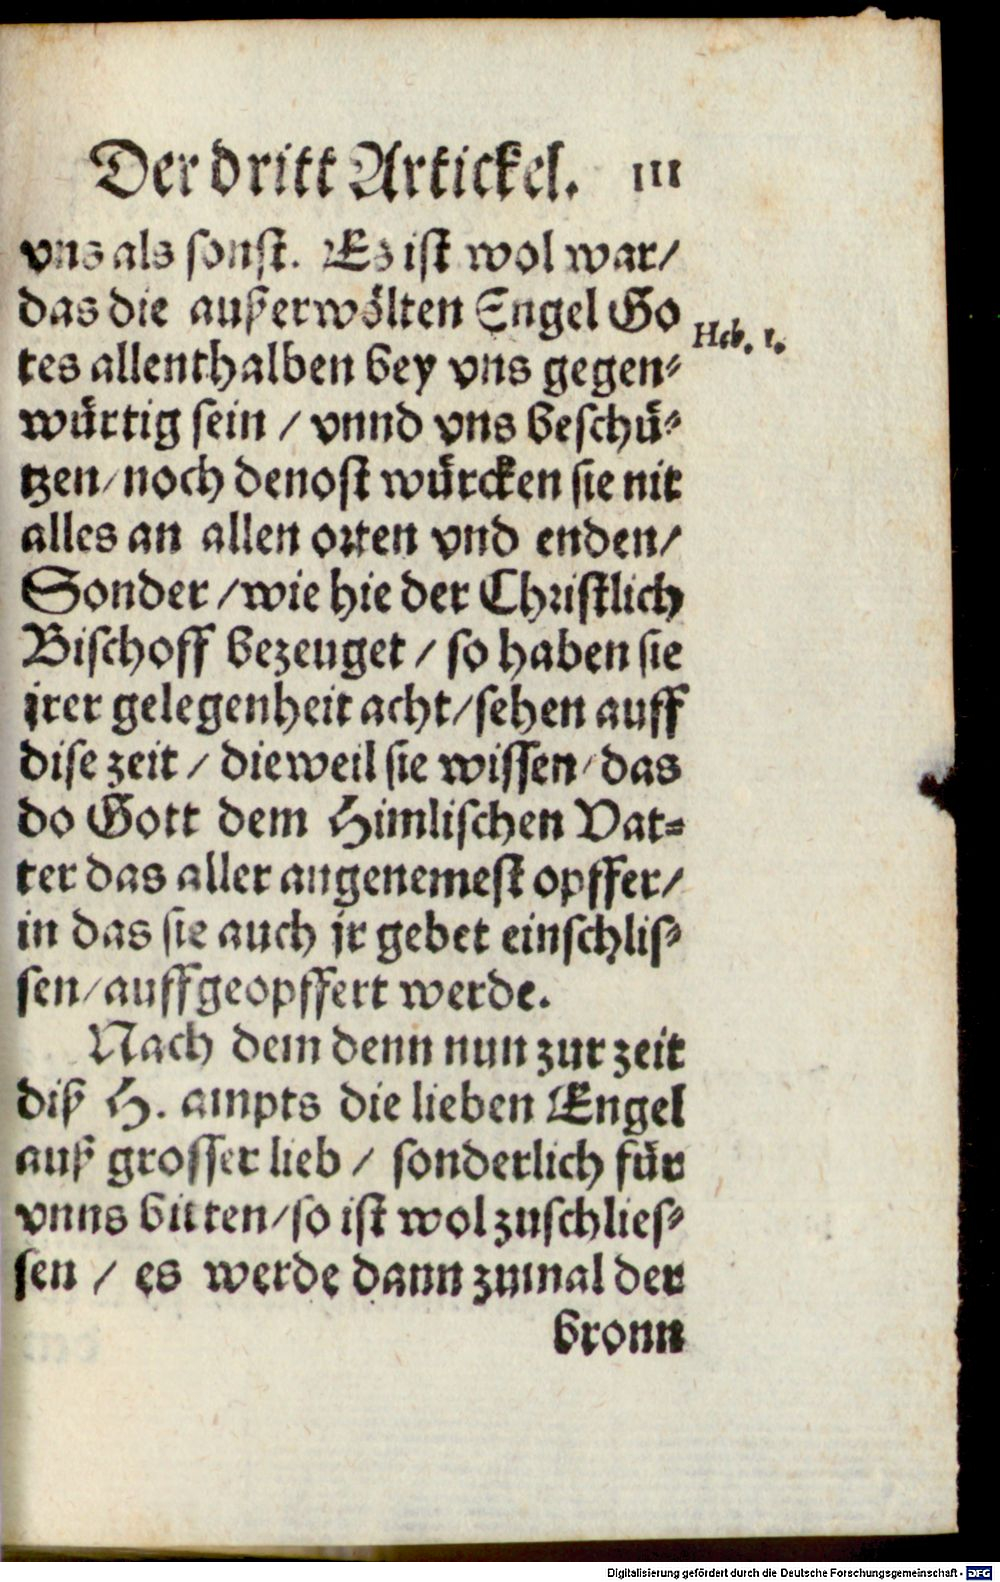 Der dritt Artickel. 111
vns als sonst. Es ist wol war/
das die außerwölten Engel Go
Heb. 1.
tes allenthalben bey vns gegen-
würtig sein / vnnd vns beschü-
tzen/noch denost würcken sie nit
alles an allen orten vnd enden/
Sonder /wie hie der Christlich
Bischoff bezeuget / so haben sie
jrer gelegenheit acht/sehen auff
dise zeit / dieweil sie wissen/das
do Gott dem Himlischen Vat-
ter das aller angenemest opffer/
in das sie auch jr gebet einschlis-
sen/auffgeopffert werde.
Nach dem denn nun zur zeit
diß H. ampts die lieben Engel
auß grosser lieb / sonderlich für
vnns bitten/so ist wol zuschlies-
sen / es werde dann zumal der
bronn
Digitalisierung gefördert durch die Deutsche Forschungsgemeinschaft - DFG